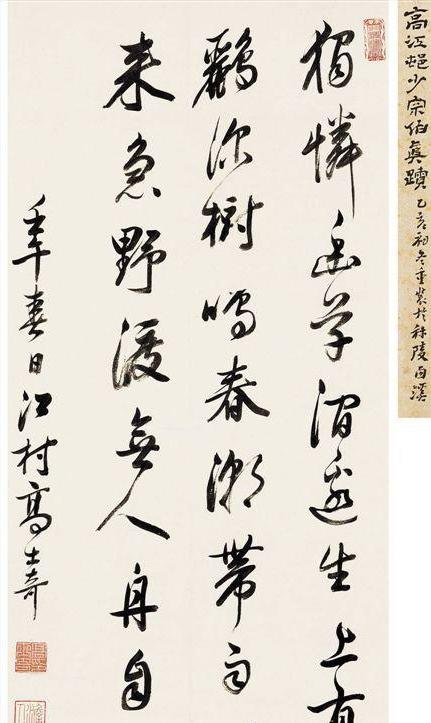 高江邨少宗伯真蹟 乙亥初冬重裝於秣陵西溪
獨憐幽草澗邊生上有
鸝深樹鳴春潮帶雨
來急野渡無人舟自
壬午春日江村高士奇